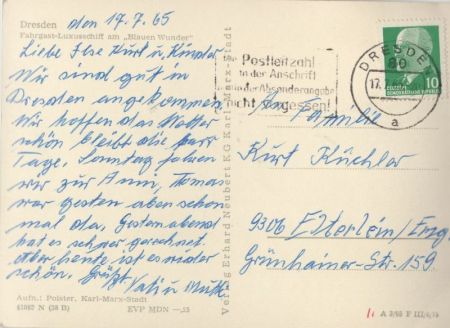 Dresden den 17.7.65
Fahrgast-Luxusschiff am „Blauen Wunder"
Liebe Ilse Kurt u. Kinder
Wir sind gut in
Dresden angekommen
Wir hoffen das Wetter
schön bleibt die paar
Tage. Sonntag fahren
wir zur Anni, Tomas
war gestern abend schon
mal da. Gestern abend
hat es schwer geregnet.
Aber heute ist es wieder
schön. Grüßt
Aufn.: Polster, Karl-Marx-Stadt
41087 N (38 B) EVP MDN —,15
Verlag Erhard Neubert KG Karl-Marx-Stadt
Postleitzahl
in der Anschrift
und der Absenderangabe
nicht vergessen!
DRESDEN
17.7.
a
10
DEUTSCHE DEMOKRATISCHE REPUBLIK
Familie
Kurt Küchler
9306 Elterlein/Erzg.
Grünhainer-Str. 159.